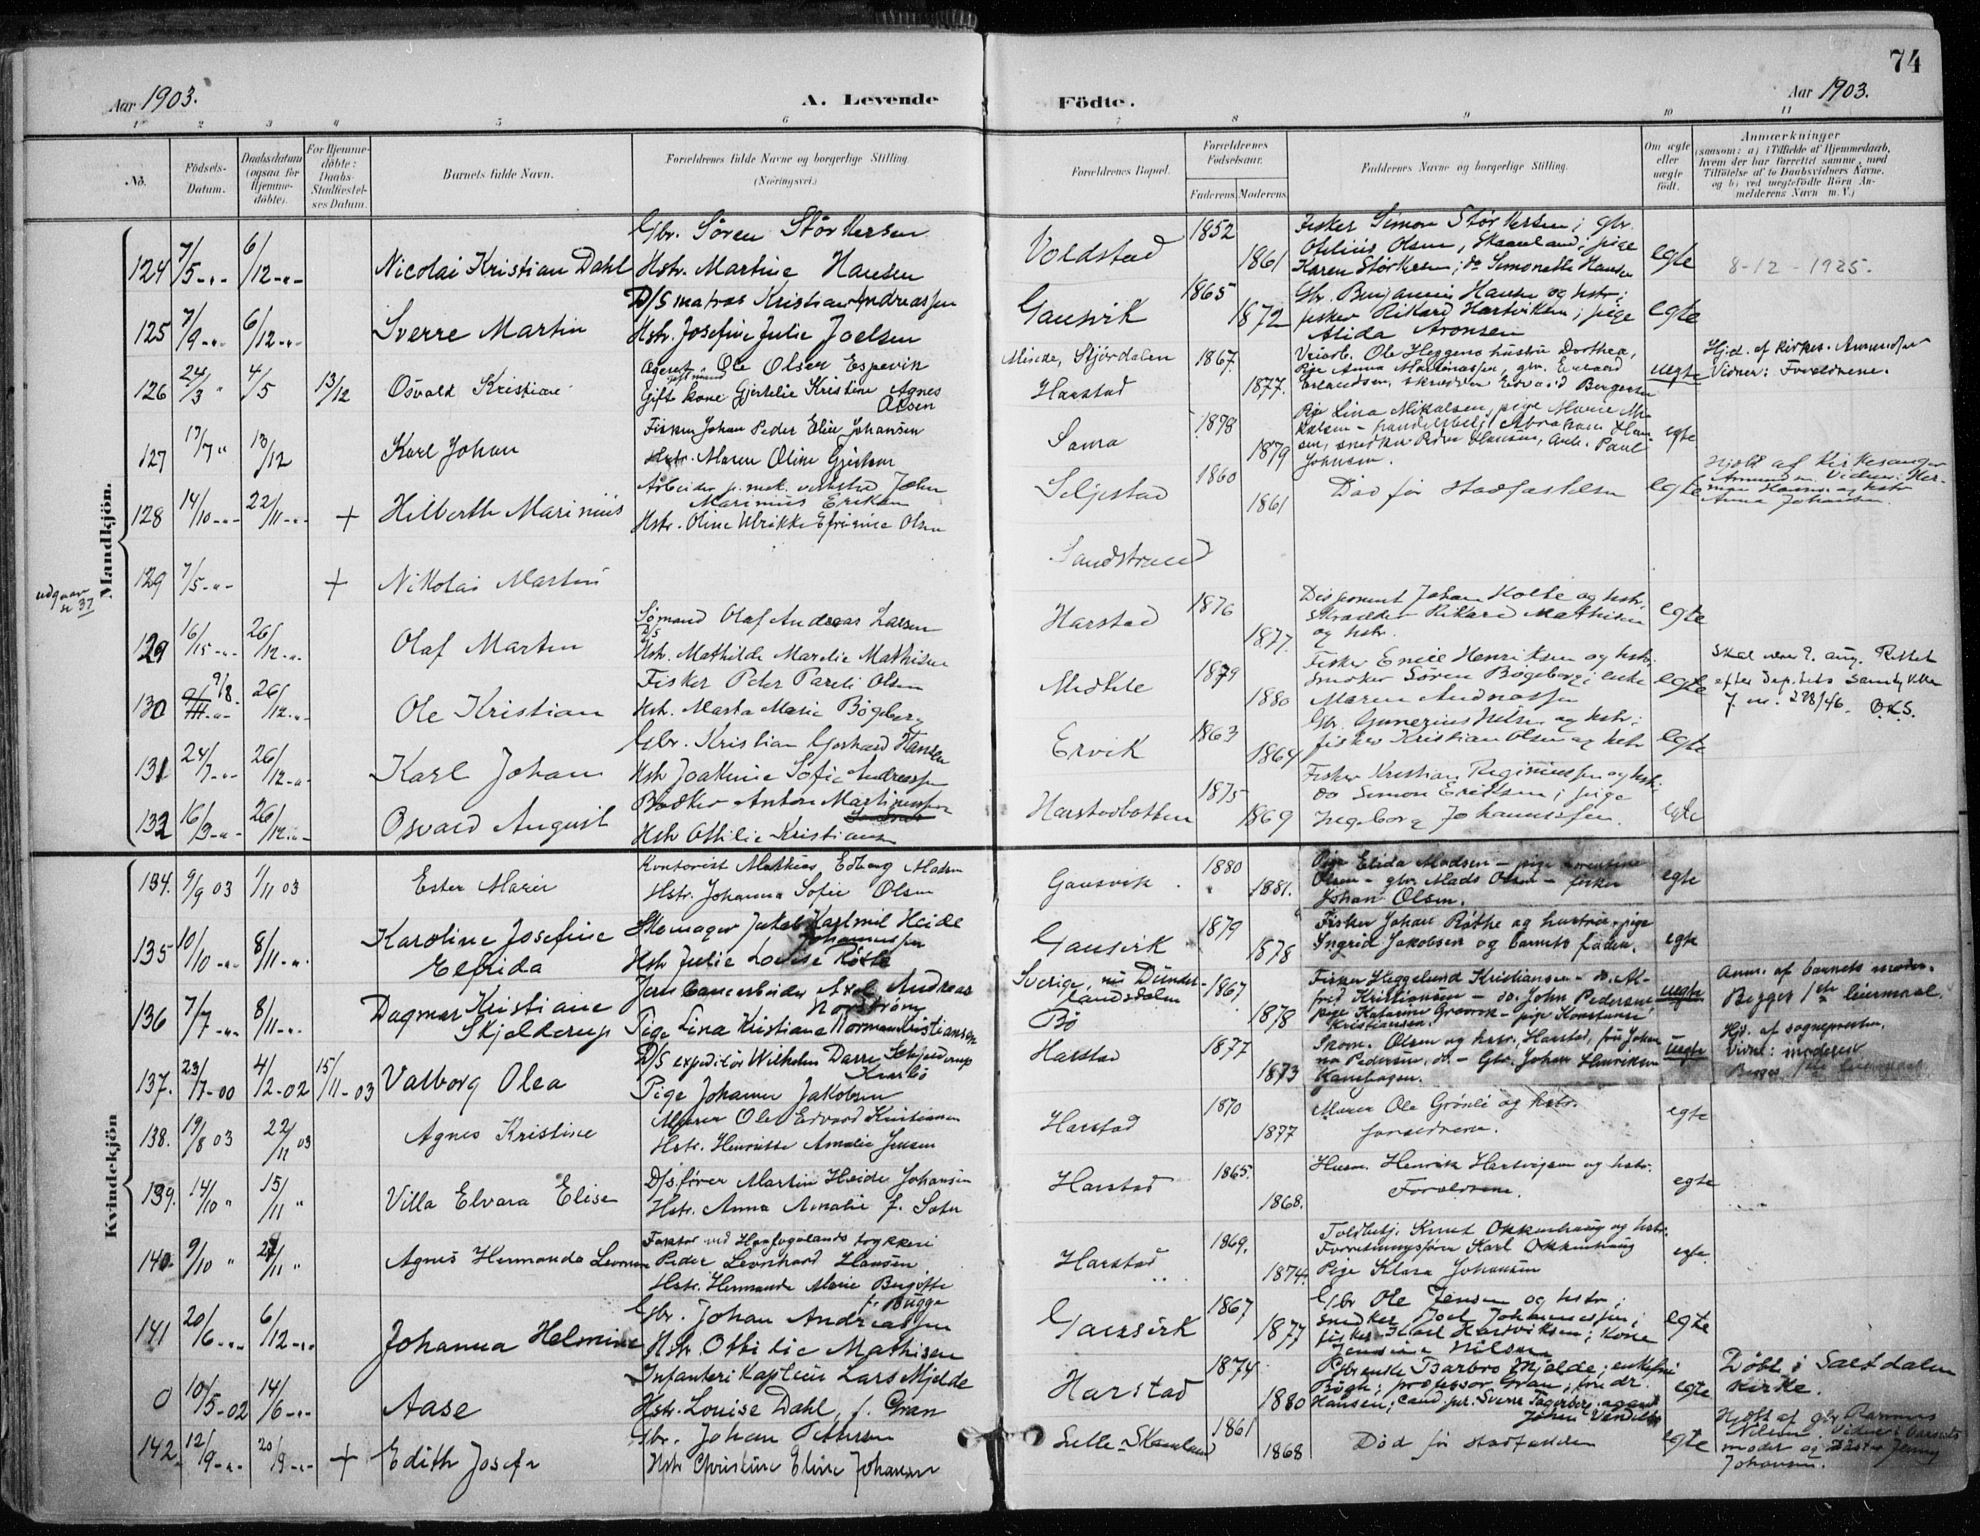 74
Aar 1903.
A. Levende
Födte.
Aar 1903.
1 2 3 4 5 6 7 8 9 10 11
No.
Födsels-
Datum.
Daabsdatum
(ogsaa for
Hjemme-
döbte).
For Hjemme-
döbte:
Daabs-
Stadfæstel-
ses Datum.
Barnets fulde Navn.
Forældrenes fulde Navne og borgerlige Stilling.
(Næringsvei.)
Forældrenes Bopæl.
Forældrenes
Födselsaar.
Faderens. Moderens.
Faddernes Navne og borgerlige Stilling.
Om ægte
eller
uægte
født.
Anmærkninger
(saasom: a) i Tilfælde af Hjemmedaab,
hvem der har forrettet samme, med
Tilföielse af to Daabsvidners Navne,
og b) ved uægtefödte Börn An-
melderens Navn m. V.)
Mandkjön.
124 7/5-"- 6/12-"- Nicolai Kristian Dahl
Gbr. Sören Störkersen
Hstr. Martine Hansen
Voldstad 1852 1861
Fisker Simon Störkersen; gbr.
Otelius Olsen, Skaanland; pige
Karen Störkersen; do Simonette Hansen
egte
8-12-1925.
125 7/9-"- 6/12-"- Sverre Martin
D/S matros Kristian Andreassen
Hstr. Josefine Julie Joelsen
Gausvik 1865 1872
Gbr. Benjamin Hansen og hstr;
fisker Rikard Hartviksen; pige
Alida Aronsen
egte
126 24/3 " 4/5 13/12 Osvald Kristian
Ole Olsen Espevik
Gift kone Gjertelie Kristine Agnes
Olsen
Stjördalen
Harstad 1867. 1877.
Ole Heggens hustru Dorthea,
uegte
Hjd. af kirkes. Amundsen
Vidner: Forældrene.
127 17/7 " 13/12 Karl Johan
Fisker Johan Peder Elie Johansen
Hstr. Maren Oline
Sama 1878 1879
Pige Lina Mikalsen, pige Marie Mi-
kalsen - handelsbetj. Abraham Han-
sen, snedker Peder Hansen, Arb. Paul
Johnsen.
egte
128 14/10-"- 22/11-"- + Hilberth Marinius
Arbeider p. mek. verksted John
Marinius Eriksen
Hstr. Oline Ulrikke Efraime Olsen
Seljestad 1860 1861
Död før stadfæstelsen
egte
Hjdb af Kirkesanger
Amundsen Vidner: Her-
man Hansen og hstr
Anna Johansen.
udgaar
se 37
129 7/5-"- + Nikolai Martin
Sandstrand
129 16/15-"- 26/12-"- Olaf Martin
Sömand Olaf Andreas Larsen
D/S
Hstr. Mathilde Marelie Mathisen
Harstad 1876 1877.
Disponent Johan Holte og hstr,
Skrædder Rikard Mathisen
og hstr.
egte
130 9/8. 26/12-"- Ole Kristian
Fisker Peder Pareli Olsen
Hstr. Marta Marie Bögeberg
Medkile 1879 1880
Fisker Emil Henriksen og hstr;
snedker Sören Bögeberg; enke
Maren Andreassen
egte
Skal være 9. aug. Rettet
efter Dep.ets samtykke
J. nr. 298/46. O.K.S.
131 24/7-"- 26/12-"- Karl Johan
Gbr. Kristian Gerhard Hansen
Hstr Joakime Sofie Andreassen
Ervik 1863 1864
Gbr. Gunerius Nilsen og hstr;
fisker Kristian Olsen og hstr
egte
132 16/9-"- 26/12-"- Osvald August
Bødker Anton Martinussen
Hstr Ottilie Kristiansen
Harstadbotten 1875 1869
Fisker Kristian Reginiussen og hstr;
do Simon Eriksen; pige
Ingeborg Johannessen.
egte
Kvindekjön
134. 9/9 03 1/11 03 Ester Marie
Kontorist Mathias Edberg Madsen
Hstr. Johanna Sofie Olsen
Gausvik. 1880 1881.
Pige Elida Madsen - pige Lorentine
Olsen - gbr. Mads Olsen - fisker
Johan Olsen.
egte
135 10/10-"- 8/11-"- Karoline Josefine
Elfrida
Skomager Jakob Karlmil Heide
Johannessen
Hstr Julie Lovise Röthe
Gausvik 1879 1878
Fisker Johan Röthe og hustru, pige
Ingrid Jakobsen og barnets fader.
egte
136 7/7-"- 8/11-"- Dagmar Kristiane
Skjelderup
Jernbanearbeider Axel Andreas
Norström
Pige Lina Kristiane Norman Kristiansen
Sverige, nu Dunder-
landsdalen
Bö 1867 1878
Fisker Heggelund Kristiansen - do. Al-
fred Kristiansen - do. John Pedersen
pige Katarine - pige Konstanse
Kristiansen.
uegte
Anm. af barnets moder.
Begges 1ste leiermaal.
137. 23/7-00 4/2-02 15/11-03 Valborg Olea
D/S expeditör Wilhelm Darre Schjelderup
Pige Johanna Jakobsen
Harstad 1877 1873
Skom. Olsen og hstr, Harstad, fru Johan-
na Pedersen, do. - Gbr. Johan Henriksen
uegte
Hjd. af sognepresten.
Vidne: moderen
Begges 1ste leiermaal.
138. 19/8 03 22/11 03 Agnes Kristine
Murer Ole Edvard Kristiansen
Hstr. Henriette Amalie Jensen
Harstad 1870 1877
Murer Ole Grönli og hstr.
forældrene.
egte
139. 14/10 " 15/11 " Villa Elvara Elise
D/s förer Martin Heide Johansen
Hstr. Anna Amalie f. Sæter
Harstad 1865. 1868.
Husm. Henrik Hartvigsen og hstr.
Forældrene.
egte
140. 9/10 " 27/11 " Agnes Hermanda
Faktor ved Haalogalands trykkeri
Peder Leonhard Hansen
Hstr. Hermanda Marie Birgitte
f. Bugge
Harstad 1869. 1874.
Toldbetj. Knut Okkenhaug og hstr.
Forretningsförer Karl Okkenhaug
Pige Klara Johansen
egte.
141 20/6-"- 6/12-"- Johanna Helmine
Gbr. Johan Andreassen
Hstr Ottilie Mathisen
Gausvik 1867 1877
Gbr Ole Jensen og hstr;
snedker Joel Johannessen;
fisker Karl Hartviksen; Kone
Jensine Nilsen
egte
0 10/5-02 14/6-"- Aase
Infanterikaptein Lars Mjelde
Hstr. Louise Dahl, f. Gran
Harstad 1874 1880
Barbro Mjelde; enkefru
Bögh; professor Gran; fru dr.
Hansen; cand. jur. Sverre Fagerberg; agent
Johan
egte
Döbt i Saltdalen
Kirke.
142. 12/9-"- 20/9-"- + Edith Josefa
Gbr. Johan Pettersen
Hstr Christine Eline Johansen
Lille-Skaanland 1861 1868
Död før stadfæstelsen
egte
Hjdbt. af gbr Rasmus
Nilsen. Vidner: barnets
moder og Jenny
Johansen.